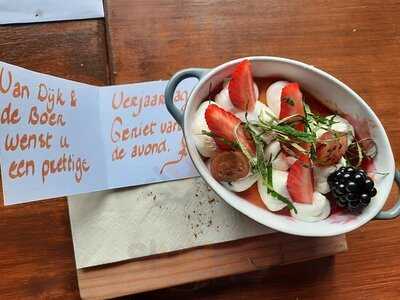 Van Dijk &
de Boer
wenst u
een prettige
Verjaardag
Geniet van
de avond.